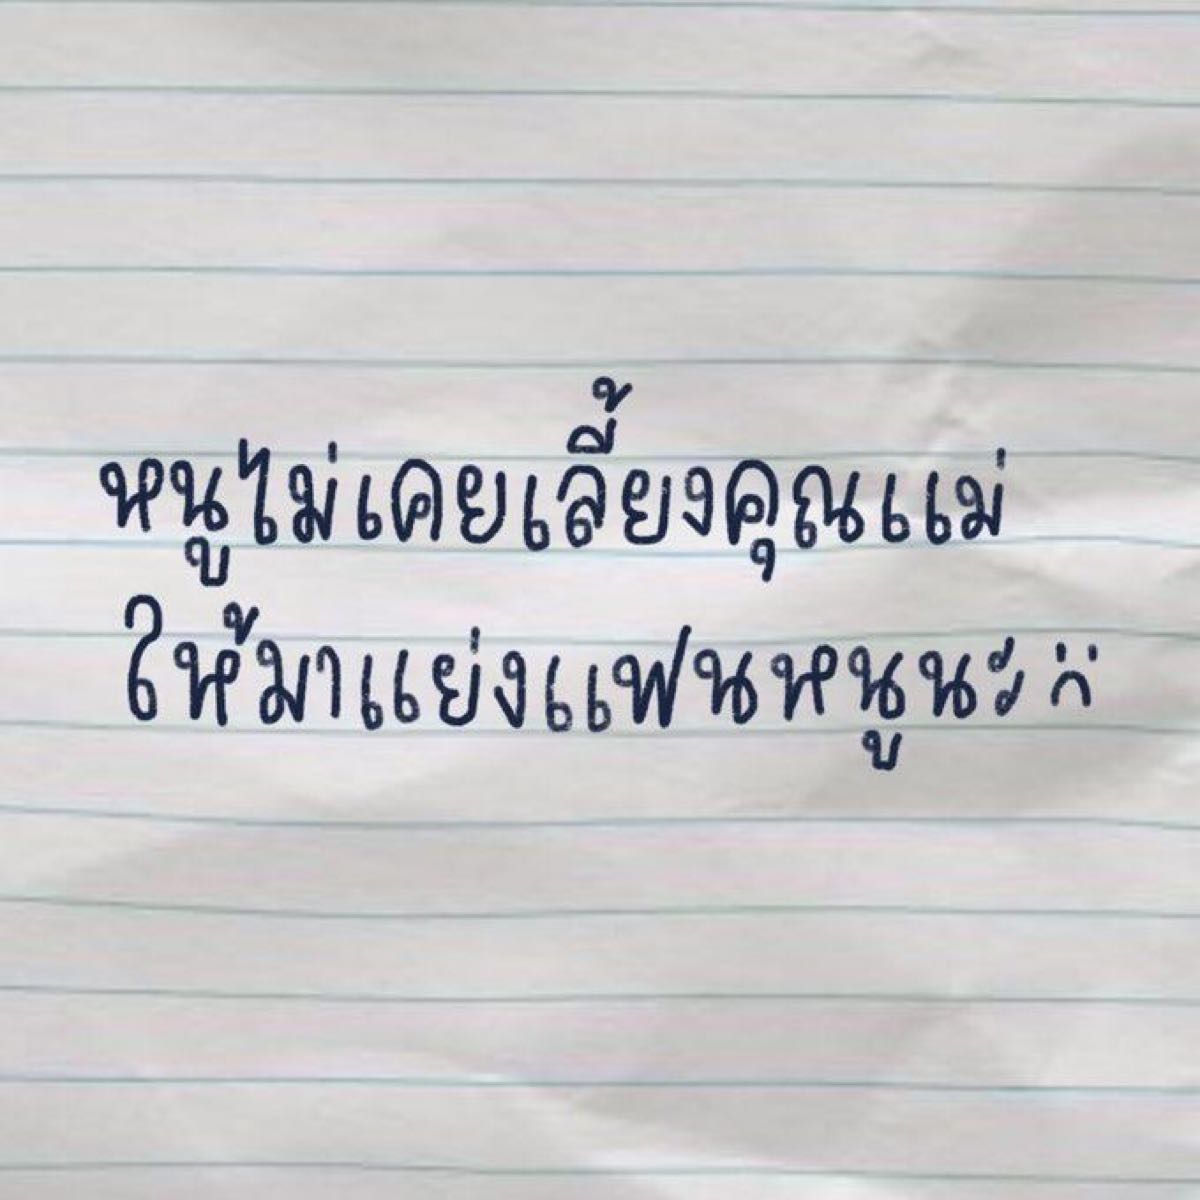 หนูไม่เคยเลี้ยงคุณแม่
ให้มาแย่งแฟนหนูนะ :(